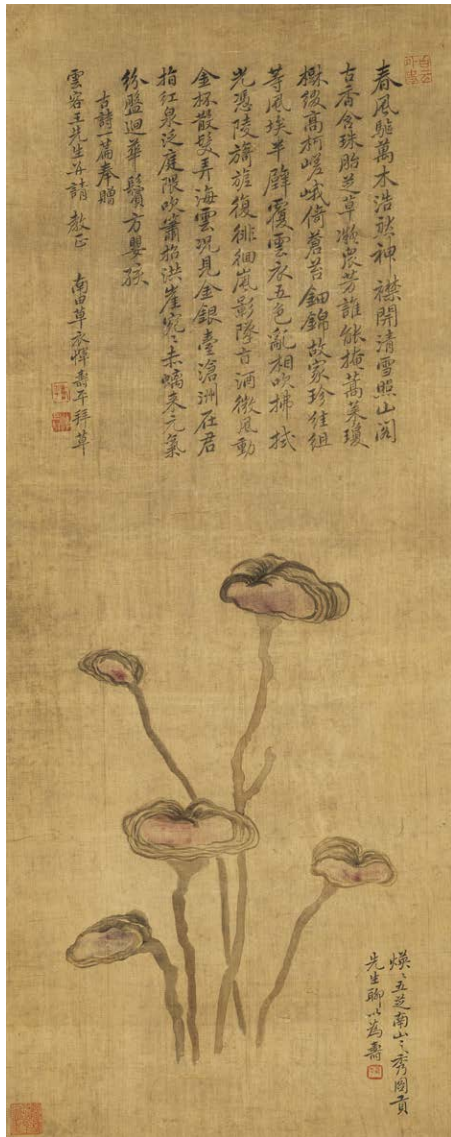 春風駘萬木浩然神襟開清雪照山閣
古香含珠胎芝草凝衆芳誰能掩蒿萊瓊
綴高柯嵯峨倚蒼苔鈿錦故家珍佳組
等風埃半壁覆雲衣五色亂相吹掃拭
光憑陵旖旎復徘徊嵐影墜酒微風動
金杯散髮弄海雲現見金銀臺滄洲在君
指紅泉泛庭隈吹簫招洪崖宛〻未來元氣
紛盤迴華鬢方嬰孩
古詩一篇奉贈
雲客王先生並請 教正 南田草衣惲壽平拜草
煐〻五芝南山之秀圖貢
先生聊以為壽